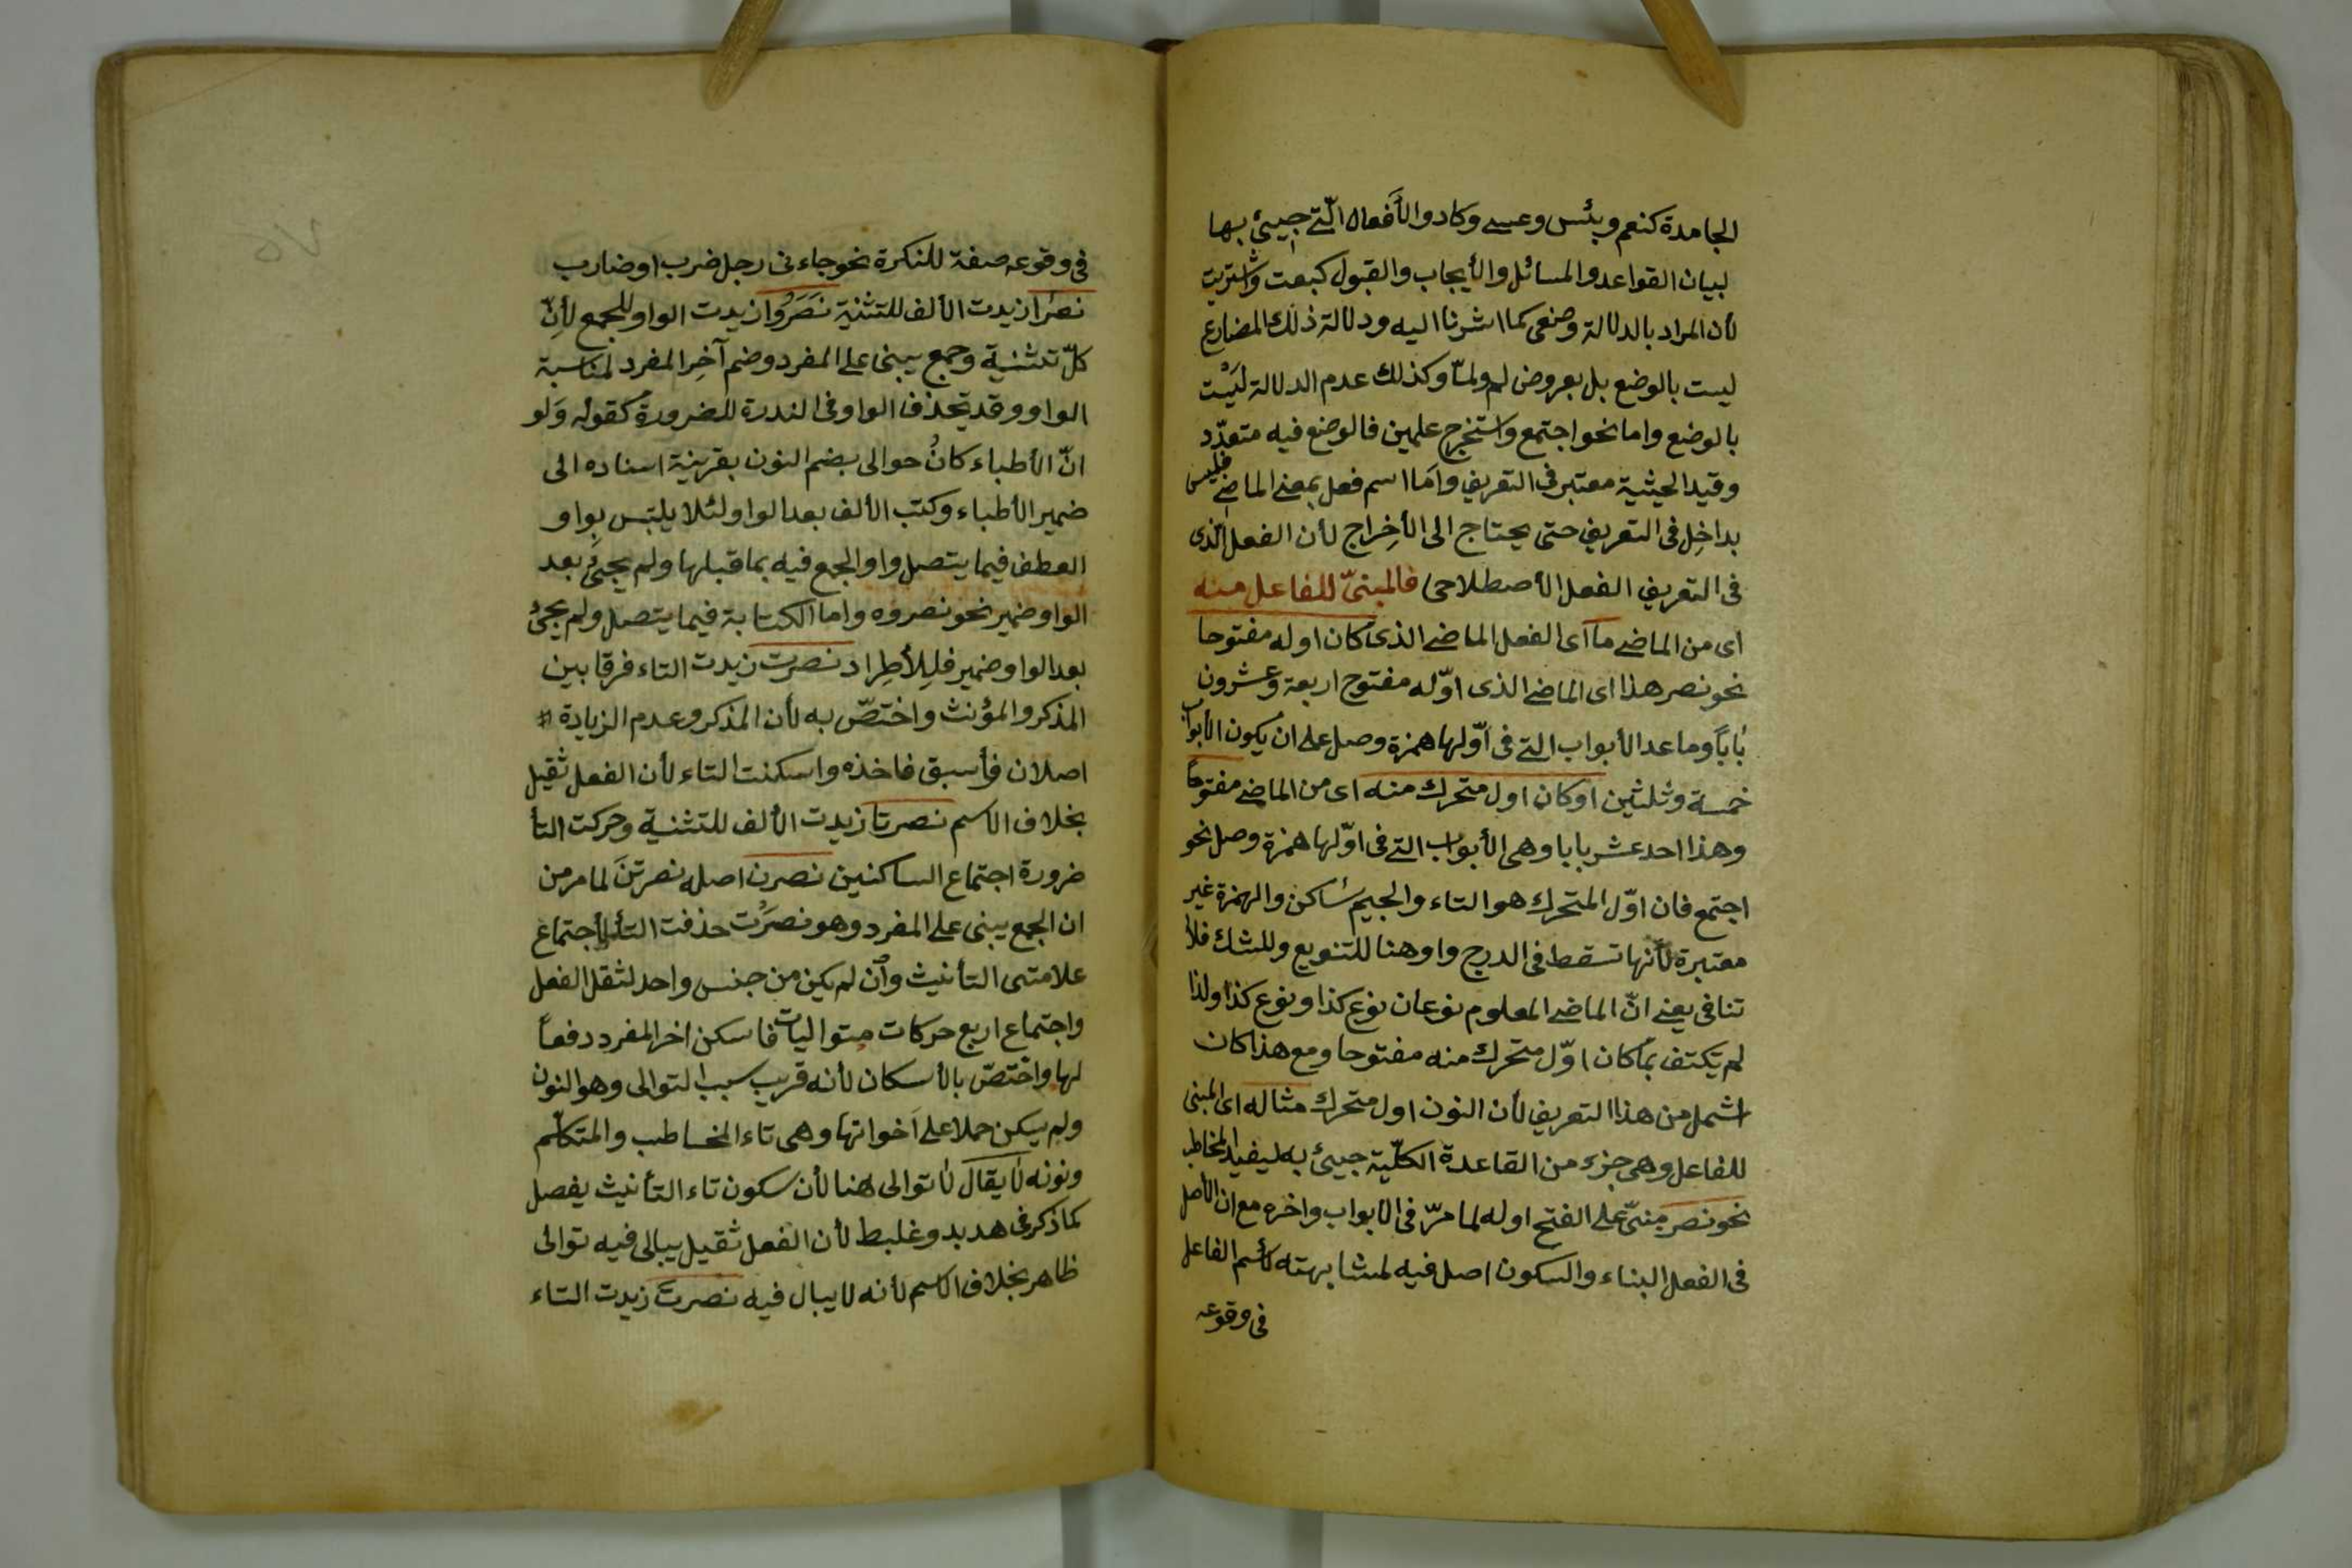 الجامدة كنعم وبئس وعسى وكاد والأفعال الّتى جيئ بها
لبيان القواعد والمسائل والأيجاب والقبول كبعت واشتريت
لأن المراد بالدلالة وضعى كما اشرنا اليه ودلالة ذلك المضارع
ليست بالوضع بل بعروض لم ولمّا وكذلك عدم الدلالة ليَست
بالوضع واما نحو اجتمع واستخرج علمين فالوضع فيه متعدّد
وقيد الحيثية معتبر فى التعريف وامّا اسم فعل بمعنى الماضى فليس
بداخِل فى التعريف حتى يحتاج الى الأخِراج لأن الفعل الّذى
فى التعريف الفعل الأصطلاحى فالمبنىّ للفاعل منه
اى من الماضى ما اى الفعل الماضى الذى كان اوله مفتوحا
نحو نصر هذا اى الماضى الذى اوّله مفتوح اربعة وعشرون
باباً وما عدا الأبواب التى فى اوّلها همزة وصل على ان يكون الأبواب
خمسة وثلثين اوكان اول متحرك منه اى من الماضى مفتوحاً
وهذا احد عشر بابا وهى الأبواب التى فى اوّلها همزة وصل نحو
اجتمع فان اوّل المتحرك هو التاء والجيم ساكن والهمزة غير
معتبرة لأنها تسقط فى الدرج واو هنا للتنويع وللشك فلا
تنافى يعنى انّ الماضى المعلوم نوعان نوع كذا ونوع كذا ولذا
لم يكتف بما كان اوّل متحرك منه مفتوحا ومع هذا كان
اشمل من هذا التعريف لأن النون اول متحرك مثاله اى المبنى
للفاعل وهى جزء من القاعدة الكلّية جيئ به ليفيد المخاطب
نحو نصر مبنىّ على الفتح اوله لما مرّ فى الابواب واخره مع ان الأصل
فى الفعل البناء والسكون اصل فيه لمشابهته لأسم الفاعل
فى وقوعه
فى وقوعه صفة للنكرة نحو جاءنى رجل ضرب او ضارب
نصرا زيدت الألف للتثنية نَصَرُوا زيدت الواو للجمع لأنّ
كلّ تثنية وجمع يبنى على المفرد وضم آخِر المفرد لمناسبة
الواو وقد تحذف الواو فى الندرة للضرورة كقوله وَلو
انّ الأطباء كانُ حوالى بضم النون بقرينة اسناده الى
ضمير الأطباء وكتب الألف بعد الواو لئلا يلتبس بواو
العطف فيما يتصل واو الجمع فيه بما قبلها ولم يجئ بعد
الواو ضمير نحو نصروه واما الكتابة فيما يتصل ولم يجئ
بعد الواو ضمير فلِلأطِراد نصرت زيدت التاء فرقا بين
المذكر والمؤنث واختصّ به لأن المذكر وعدم الزيادة
اصلان فأسبق فاخذه واسكنت التاء لأن الفعل ثقيل
بخلاف الاسم نصرتا زيدت الألف للتثنية وحركت التأ
ضرورة اجتماع الساكنين نصرن اصله نصرتنَ لما مر من
ان الجمع يبنى على المفرد وهو نصرَت حذفت التأ لأجتماع
علامتى التأنيث وان لم يكن من جنس واحد لثقل الفعل
واجتماع اربع حركات متواليات فاسكن اخر المفرد دفعاً
لها واختصّ بالأسكان لأنه قريب سبب التوالى وهو النون
ولم يسكن حملا على اَخواتها وهى تاء المخاطب والمتكلّم
ونونه لا يقال لا توالى هنا لأن سكون تاء التأنيث يفصل
كما ذكر فى هدبد وغلبط لأن الفعل ثقيل يبالى فيه توالى
ظاهر بخلاف الاسم لأنه لا يبال فيه نصرتَ زيدت التاء